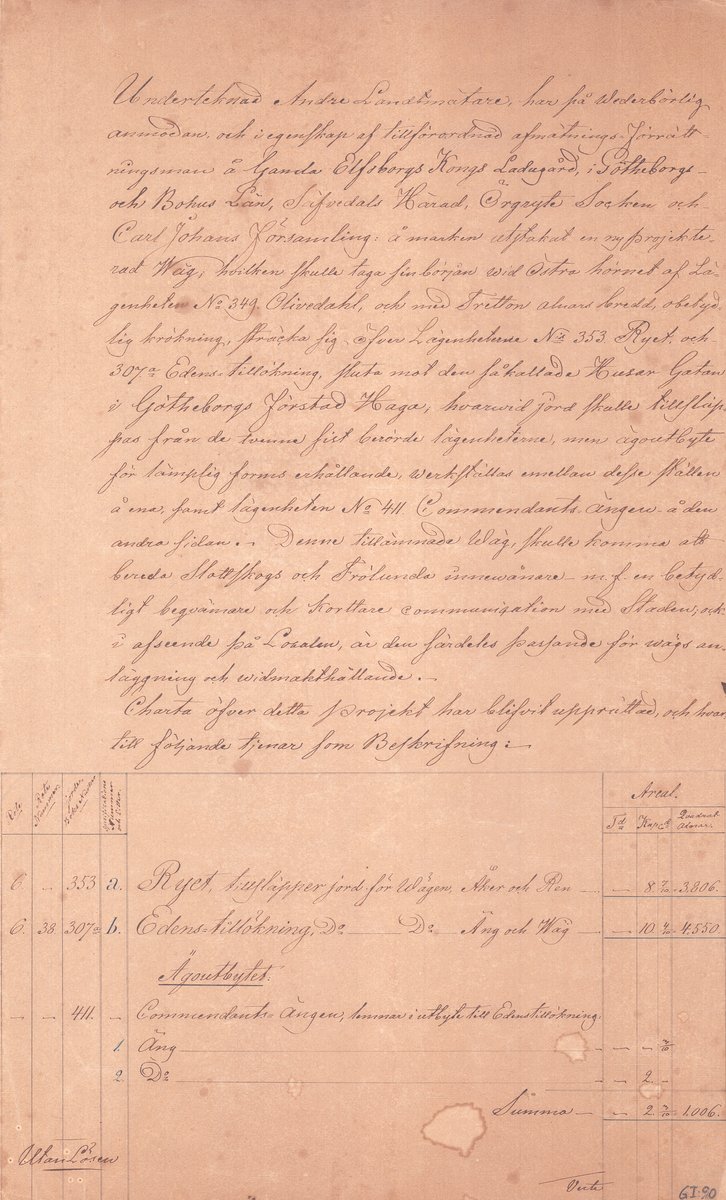 Underteknad Andre Landtmätare, har på Wederbörlig
anmodan, och i egenskap af tillförordnad afmätnings-Förrätt-
ningsman å Gamla Elfsborgs Kongs Ladugård, i Götheborgs-
och Bohus Län, Säfvedals Härad, Örgryte Socken och
Carl Johans Församling: å marken utstakat en ny projekte-
rad Wäg, hvilken skulle taga sin början wid östra hörnet af Lä-
genheten No 349 Olivedahl, och med Tretton alnars bredd, obetyd-
lig krökning, sträcka sig öfver Lägenheterne No 353 Ryet, och
307a Edens-tillökning, sluta mot den såkallade Husar Gatan
i Götheborgs Förstad Haga, hvarwid jord skulle tillsläp-
pas från de tvenne sist berörde lägenheterne, men ägoutbyte
för lämplig forms erhållande, werkställas emellan desse ställen
å ena, samt lägenheten No 411 Commendants-Ängen å den
andra sidan. – Denne tillämnade Wäg, skulle komma att
bereda Slottskogs och Frölunda innewånare m.f. en betyd-
ligt beqvämare och kortare communication med Staden, och
i afseende på Localen, är den särdeles passande för wägs an-
läggning och widmakthållande. –
Charta öfver detta projekt har blifvit upprättad, och hvar-
till följande tjenar som Beskrifning: –
Areal.
Rote Rote Nummer Jorde Boks Numer Nummer och Litter. Td Kap. Qvadrat Alnar
6 – 353 a. Ryet, tillsläpper jord för Wägen, Åker och Ren – – 8 7/10 3,806.
6. 38 307a b. Edens-tillökning, Do Do Äng och Wäg – 10 4/10 4,550
Ägoutbytet:
– – 411. – Commendants-Ängen, lemnar i utbyte till Edens tillökning:
1. Äng – – – 7/10
2. Do – – 2 –
Summa – – 2 7/10 1,006.
Utan Lösen
Verte
GI:90